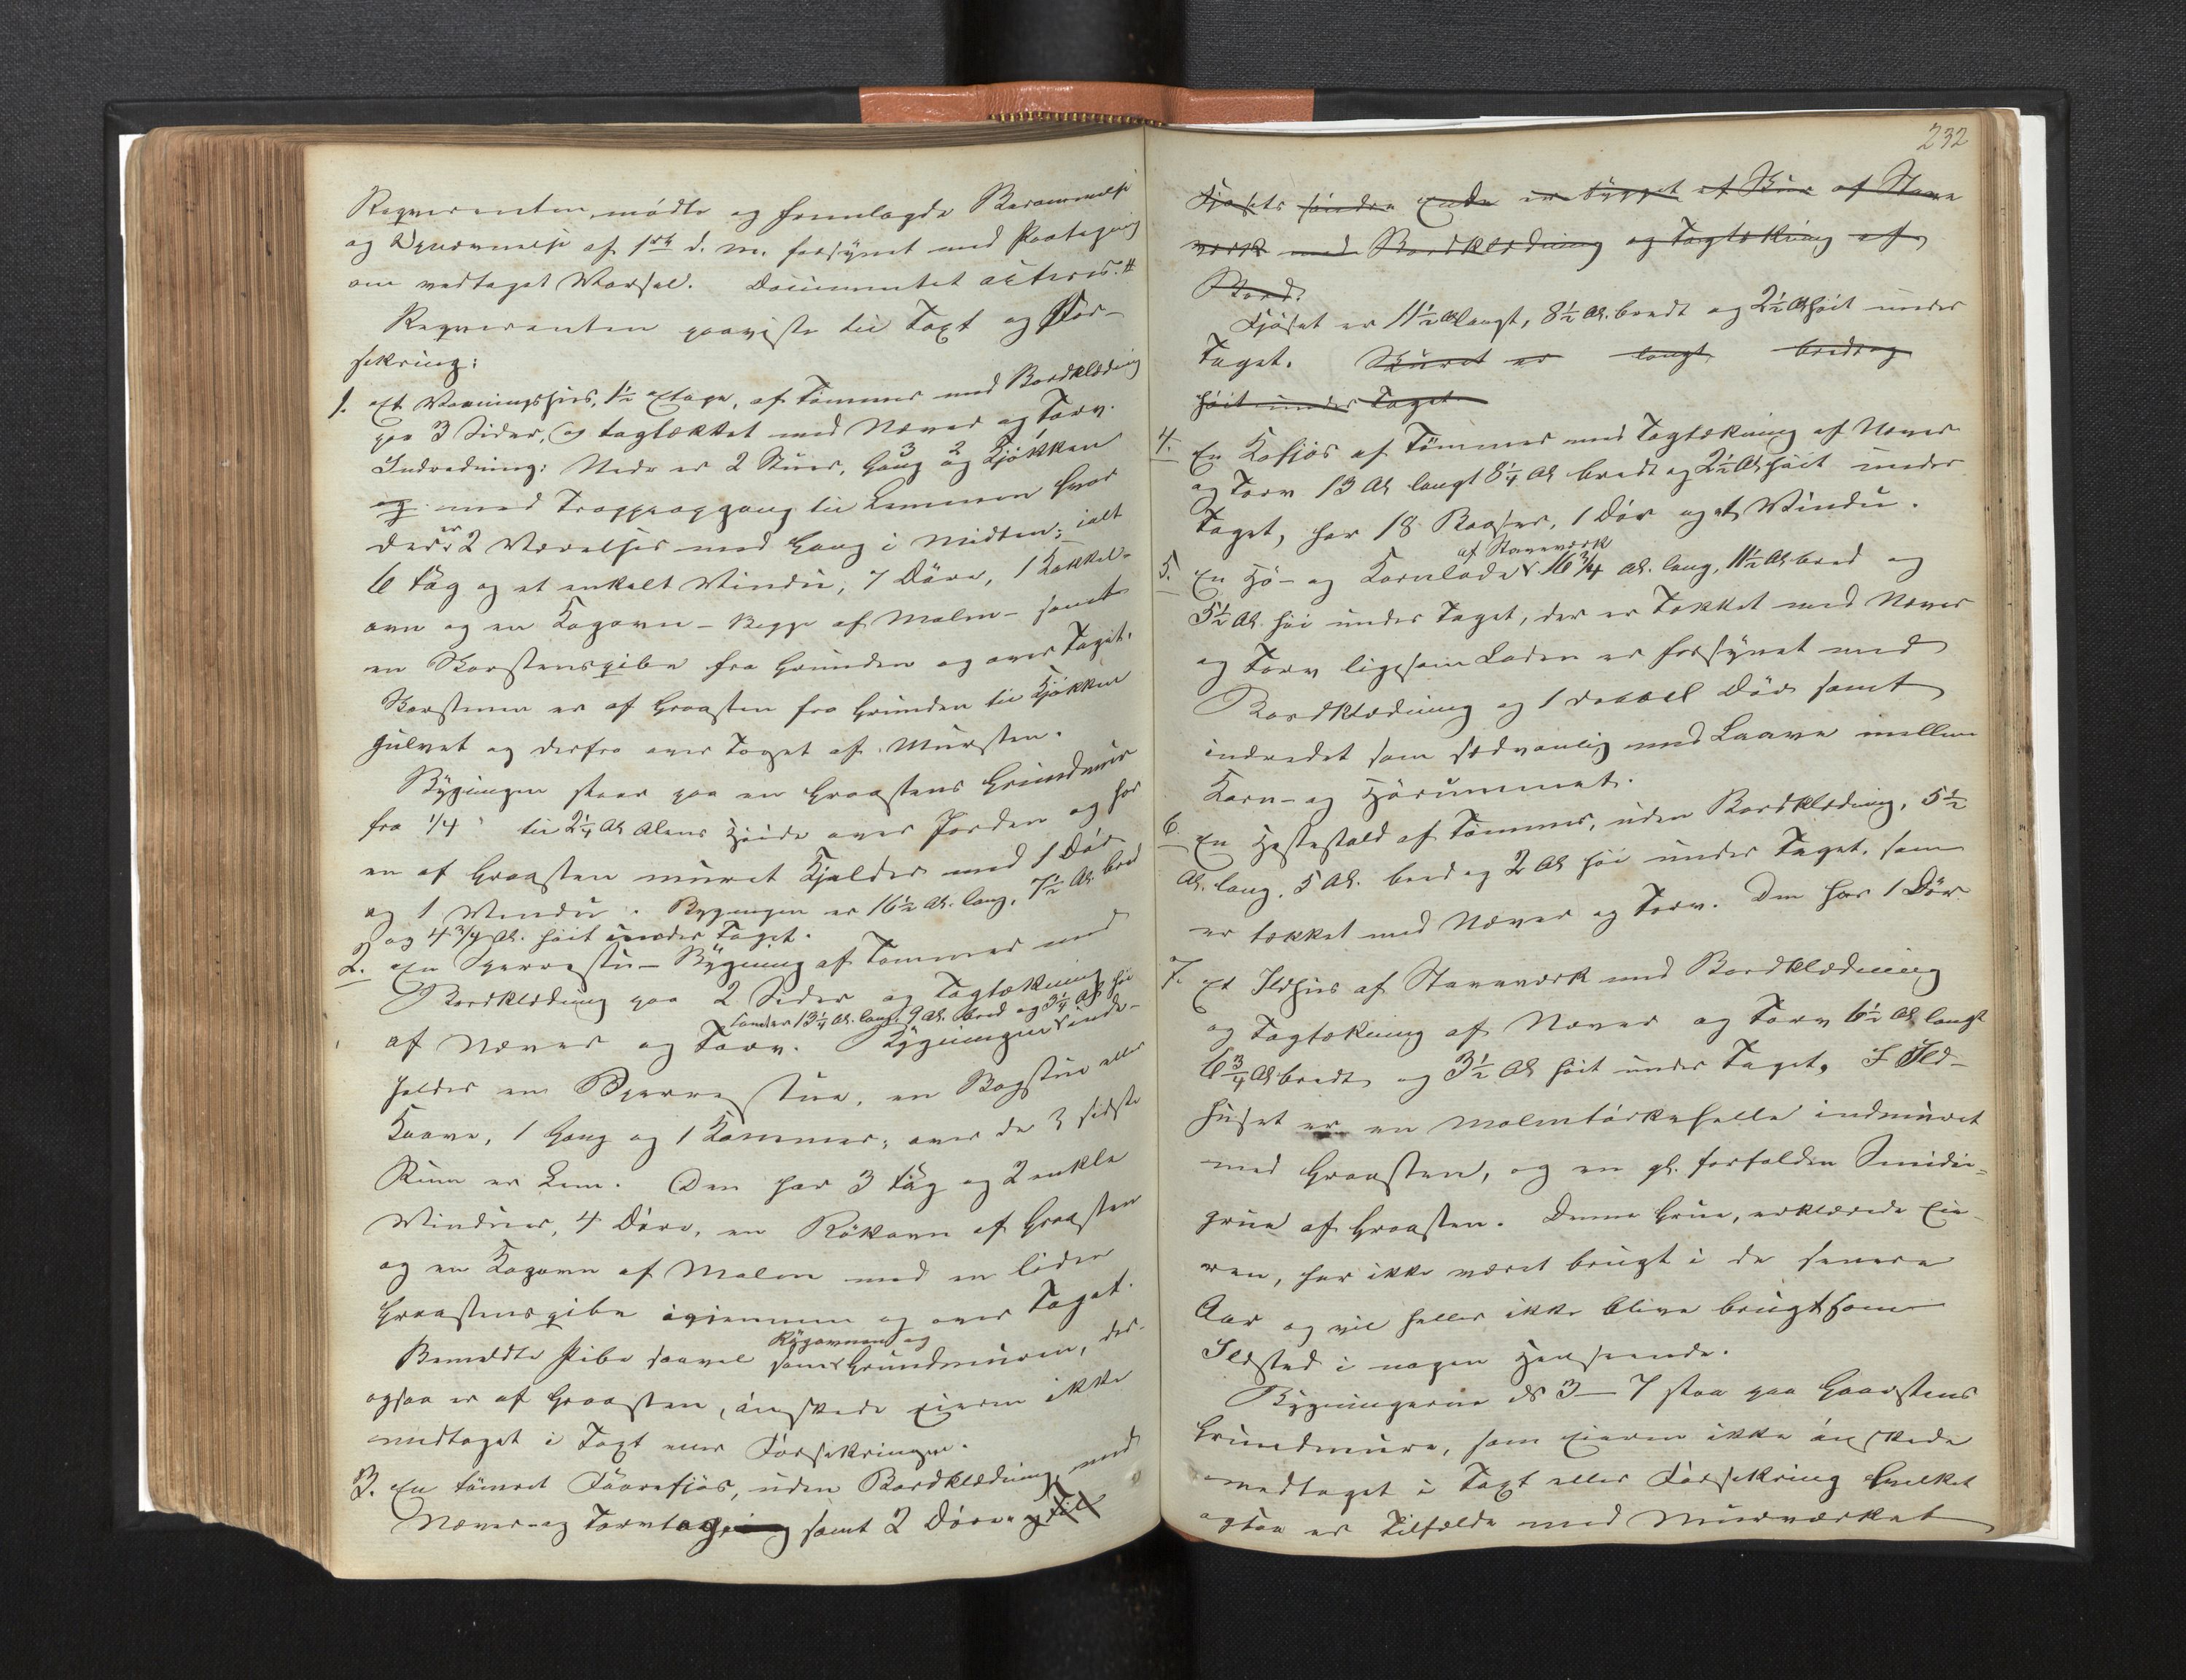 Reqverenten mødte og fremlagde Berammelse
og Opnævnelse af 1ste d. m. forsynet med Paategning
om vedtaget Varsel. Documentet acteres. #
Reqverenten paaviste til Taxt og For-
sikring:
1. Et Vaaningshus, 1½ Etage, af Tømmer med Bordklædning
paa 3 Sider, og tagtækket med Næver og Torv.
Indredning: Nede er 2 Stuer, Gang og Kjøkken
og med Trappeopgang til Lemmen hvor
der er 2 Værelser med Gang i Midten; ialt
6 Fag og et enkelt Vindu, 7 Døre, 1 Kakkel-
ovn og en Kogovn - begge af Malm - samt
en Skorstenspibe fra Grunden og over Taget.
Skorstenen er af Graasten fra Grunden til Kjøkken
gulvet og derfra over Taget af Mursten.
Bygningen staar paa en Graastens Grundmur
fra 1/4 til 2¼ Al Alens Høide over Jorden og har
en af Graasten muret Kjelder med 1 Dør
og 1 Vindu. Bygningen er 16½ Al. lang, 7½ Al. bred
og 4¾ Al. høit under Taget.
2. En Sperrestu-Bygning af Tømmer med
Bordklædning paa 2 Sider og Tagtækning
13¼ Al. lang, 9 Al. bred og 3¼ Al høi
af Næver og Torv. Bygningen inde-
holder en Sperrestue, en Bagstue eller
Kaave, 1 Gang og 1 Kammer; over de 3 sidste
Rum er Lem. Den har 3 Fag og 2 enkle
Vinduer, 4 Døre, en Røkovn af Graasten
og en Kogovn af Malm med en liden
Graastenspibe igjennem og over Taget.
Bemeldte Pibe saavel som Røgovnen og Grundmuren, der
ogsaa er af Graasten, ønskede Eieren ikke
medtaget i Taxt eller Forsikringen.
3. En tømret Faarefjøs, uden Bordklædning, med
Næver- og Torvtag samt 2 Døre og Til
232
Fjøsets søndre Ende er bygget et Skur af Stave
værk med Bordklædning og Tagtækning af
Bord.
Fjøset er 11½ Al langt, 8½ Al. bredt og 2½ Al høit under
Taget. Skuret er langt bredt og
høit under Taget.
4. En Kofjøs af Tømmer med Tagtækning af Næver
og Torv 13 Al langt 8¼ Al bredt og 2½ Al høit under
Taget, har 18 Baaser, 1 Dør og et Vindu.
5. En Hø- og Kornlade af Stavværk 16¾ Al. lang, 11½ Al bred og
5½ Al. høi under Taget, der er Tækket med Næver
og Torv ligesom Laden er forsynet med
Bordklædning og 1 dobbel Dør samt
indredet som sædvanlig med Laave mellem
Korn- og Hørummet.
6. En Hestestald af Tømmer, uden Bordklædning, 5½
Al. lang, 5 Al. bred og 2 Al høi under Taget, som
er tækket med Næver og Torv. Den har 1 Dør
7. Et Ildhus af Stavværk med Bordklædning
og Tagtækning af Næver og Torv 6½ Al langt
6¾ Al bredt og 3½ Al høit under Taget. I Ild-
huset er en Malmtørkehelle indmuret
med Graasten, og en gl. forfalden Smidie-
grue af Graasten. Denne Grue, erklærede Eie-
ren, har ikke været brugt i de senere
Aar og vil heller ikke blive brugt som
Ildsted i nogen Henseende.
Bygningerne No 3-7 staa paa Graastens
Grundmure, som Eieren ikke ønskede
medtaget i Taxt eller Forsikring hvilket
ogsaa er Tilfælde med Murværket